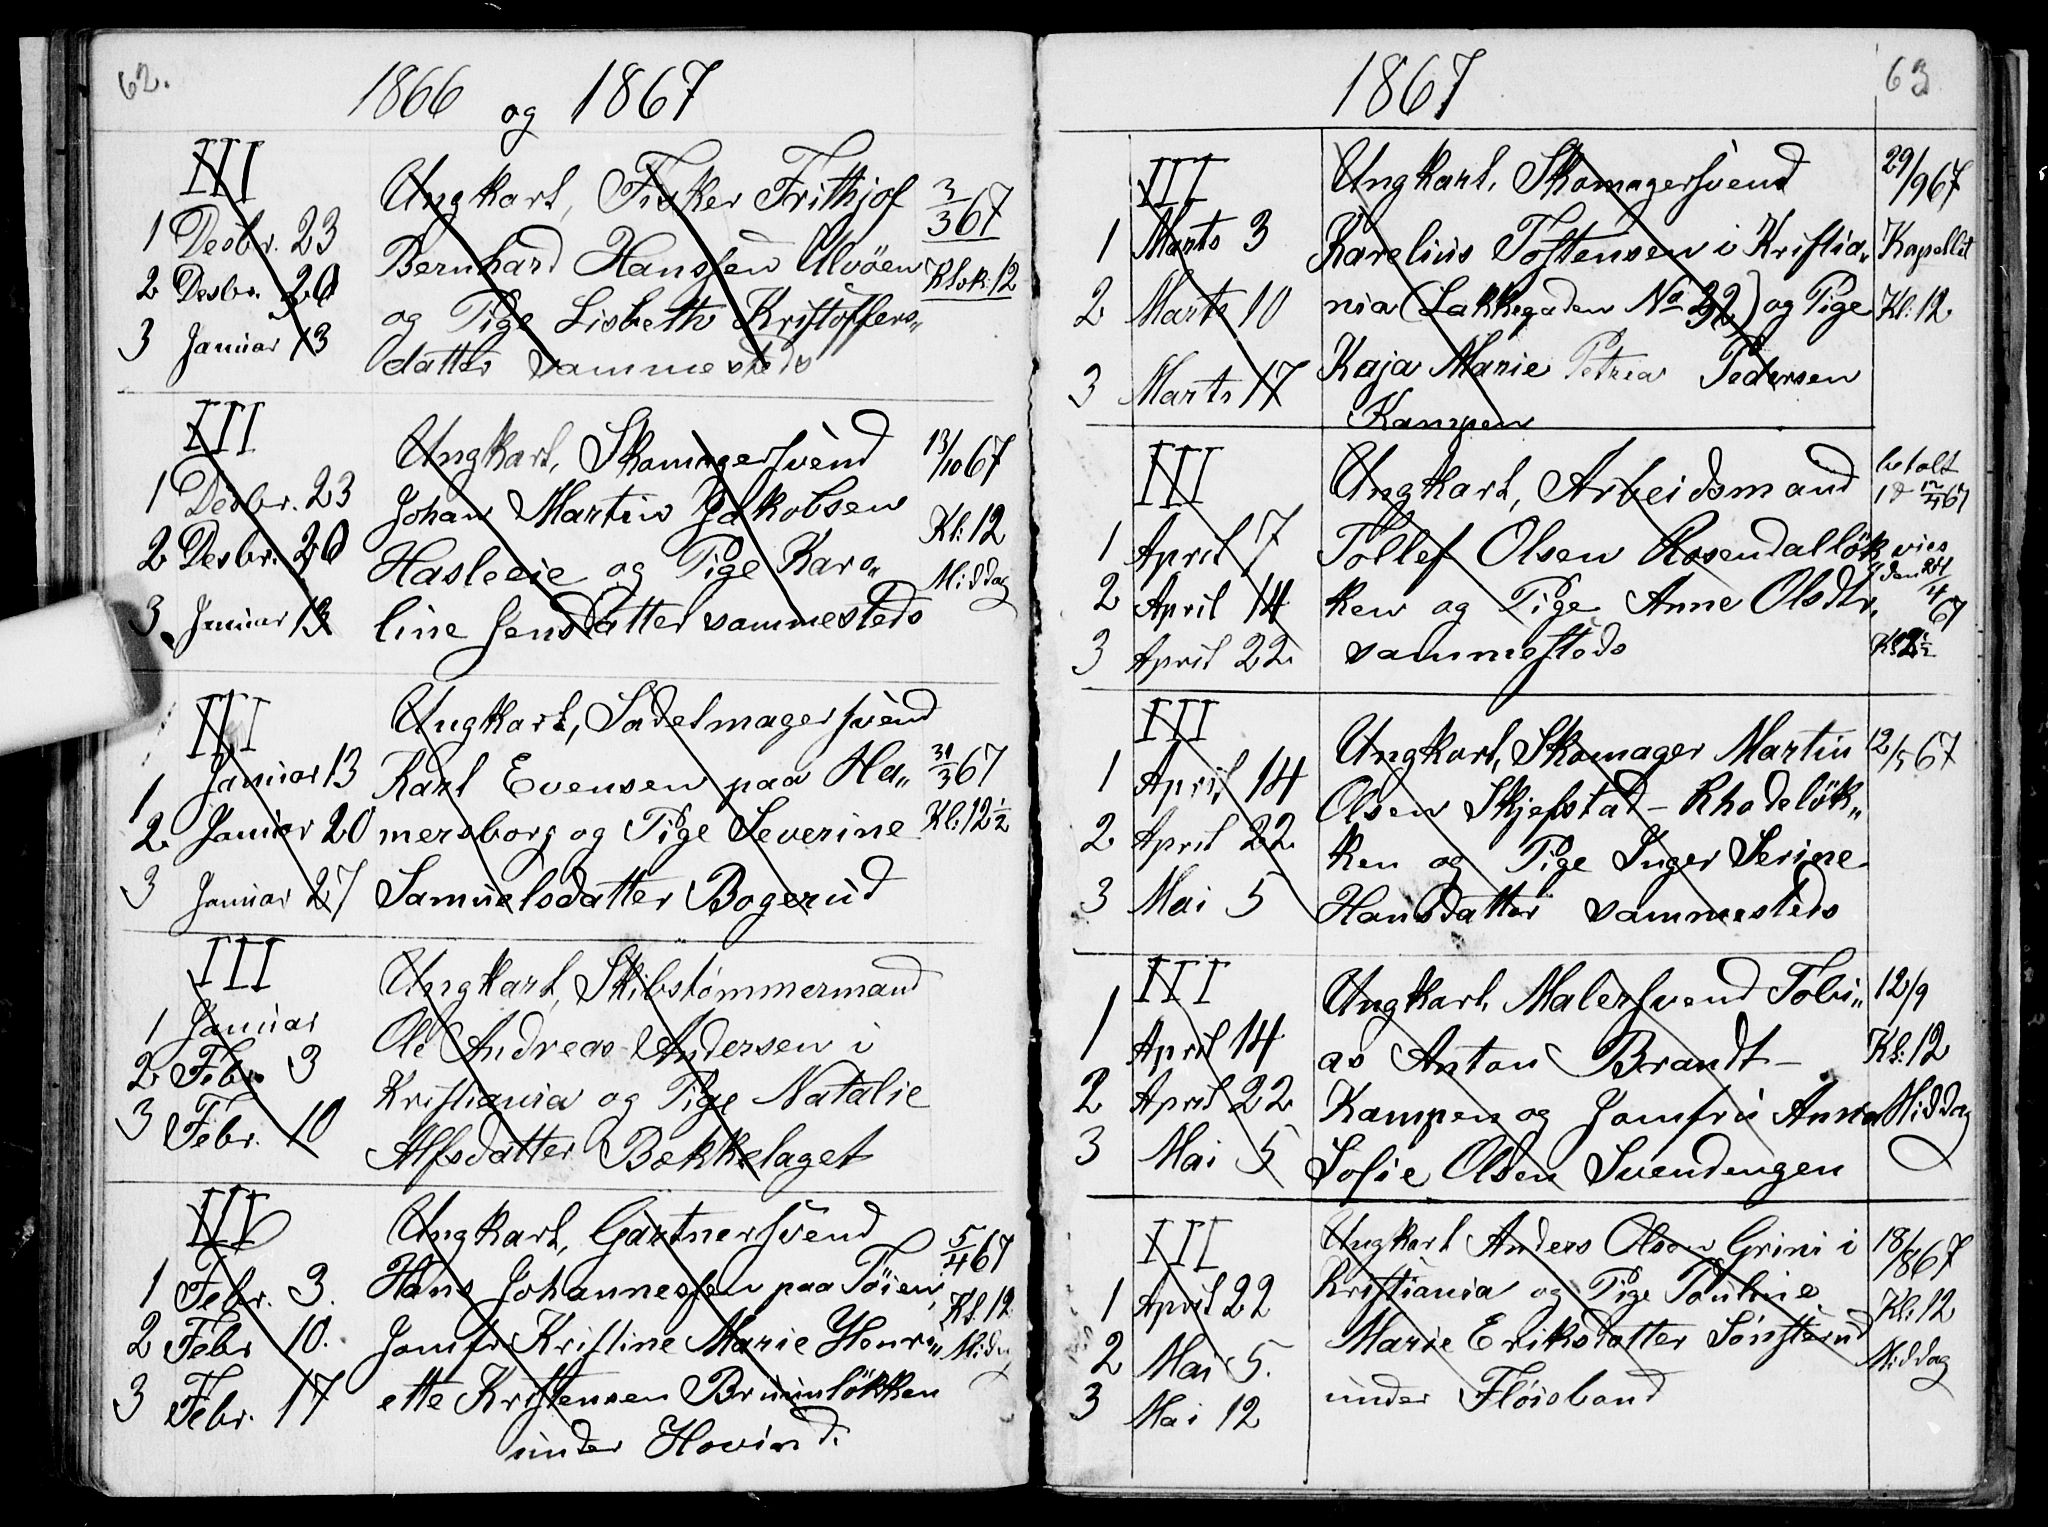 62.
1866 og 1867
III
1 Desbr. 23
2 Desbr. 26
3 Januar 13
Ungkarl, Fisker Frithjof
Bernhard Hanssen Ulvöen
og Pige Lisbeth Kristoffers„
datter sammesteds
3/3 67
Klok: 12
III
1 Desbr. 23
2 Desbr. 26
3 Januar 13
Ungkarl, Skomagersvend
Johan Martin Jakobsen
Hasleeie og Pige Karo„
line Jensdatter sammesteds
13/10 67
Kl: 12
Middag
III
1 Januar 13
2 Januar 20
3 Januar 27
Ungkarl, Sadelmagersvend
Karl Evensen paa Ha„
mersborg og Pige Severine
Samuelsdatter Bogerud
31/3 67
Kl: 12 1/2
III
1 Januar
2 Febr. 3
3 Febr. 10
Ungkarl, Skibstömmermand
Ole Andreas Andersen i
Kristiania og Pige Natalie
Alfsdatter Bækkelaget
III
1 Febr. 3.
2 Febr 10.
3 Febr. 17
Ungkarl, Gartnersvend
Hans Johannessen paa Töien,
Jomfr Kristine Marie Henri„
ette Kristensen Brunlökken
under Hovind.
5/4 67
Kl. 12
Midd
63
1867
III
1 Marts 3
2 Marts 10
3 Marts 17
Ungkarl, Skomagersvend
Karelius Tostensen i Kristia„
nia (Lakkegaden No 32) og Pige
Kaja Marie Petrea Pedersen
Kampen
29/9 67
Kapellet
Kl: 12
III
1 April 7
2 April 14
3 April 22
Ungkarl, Arbeidsmand
Tollef Olsen Rosendallök
ken og Pige Anne Olsdtr.
sammesteds
betalt
67
vies
den 21/4
67
III
1 April 14
2 April 22
3 Mai 5
Ungkarl, Skomager Martin
Olsen Skjefstad - Rhodelök„
ken og Pige Inger Serine
Hansdatter sammesteds
12/5 67
III
1 April 14
2 April 22
3 Mai 5
Ungkarl, Malersvend Tobi„
as Anton Brandt -
Kampen og Jomfru Anna
Sofie Olsen Svendengen
12/9
Kl: 12
Middag
III
1 April 22
2 Mai 5.
3 Mai 12
Ungkarl Anders Olsen Grini i
Kristiania og Pige Pauline
Marie Eriksdatter Sönsterud
under Flöisbond
18/8 67
Kl: 12
Middag